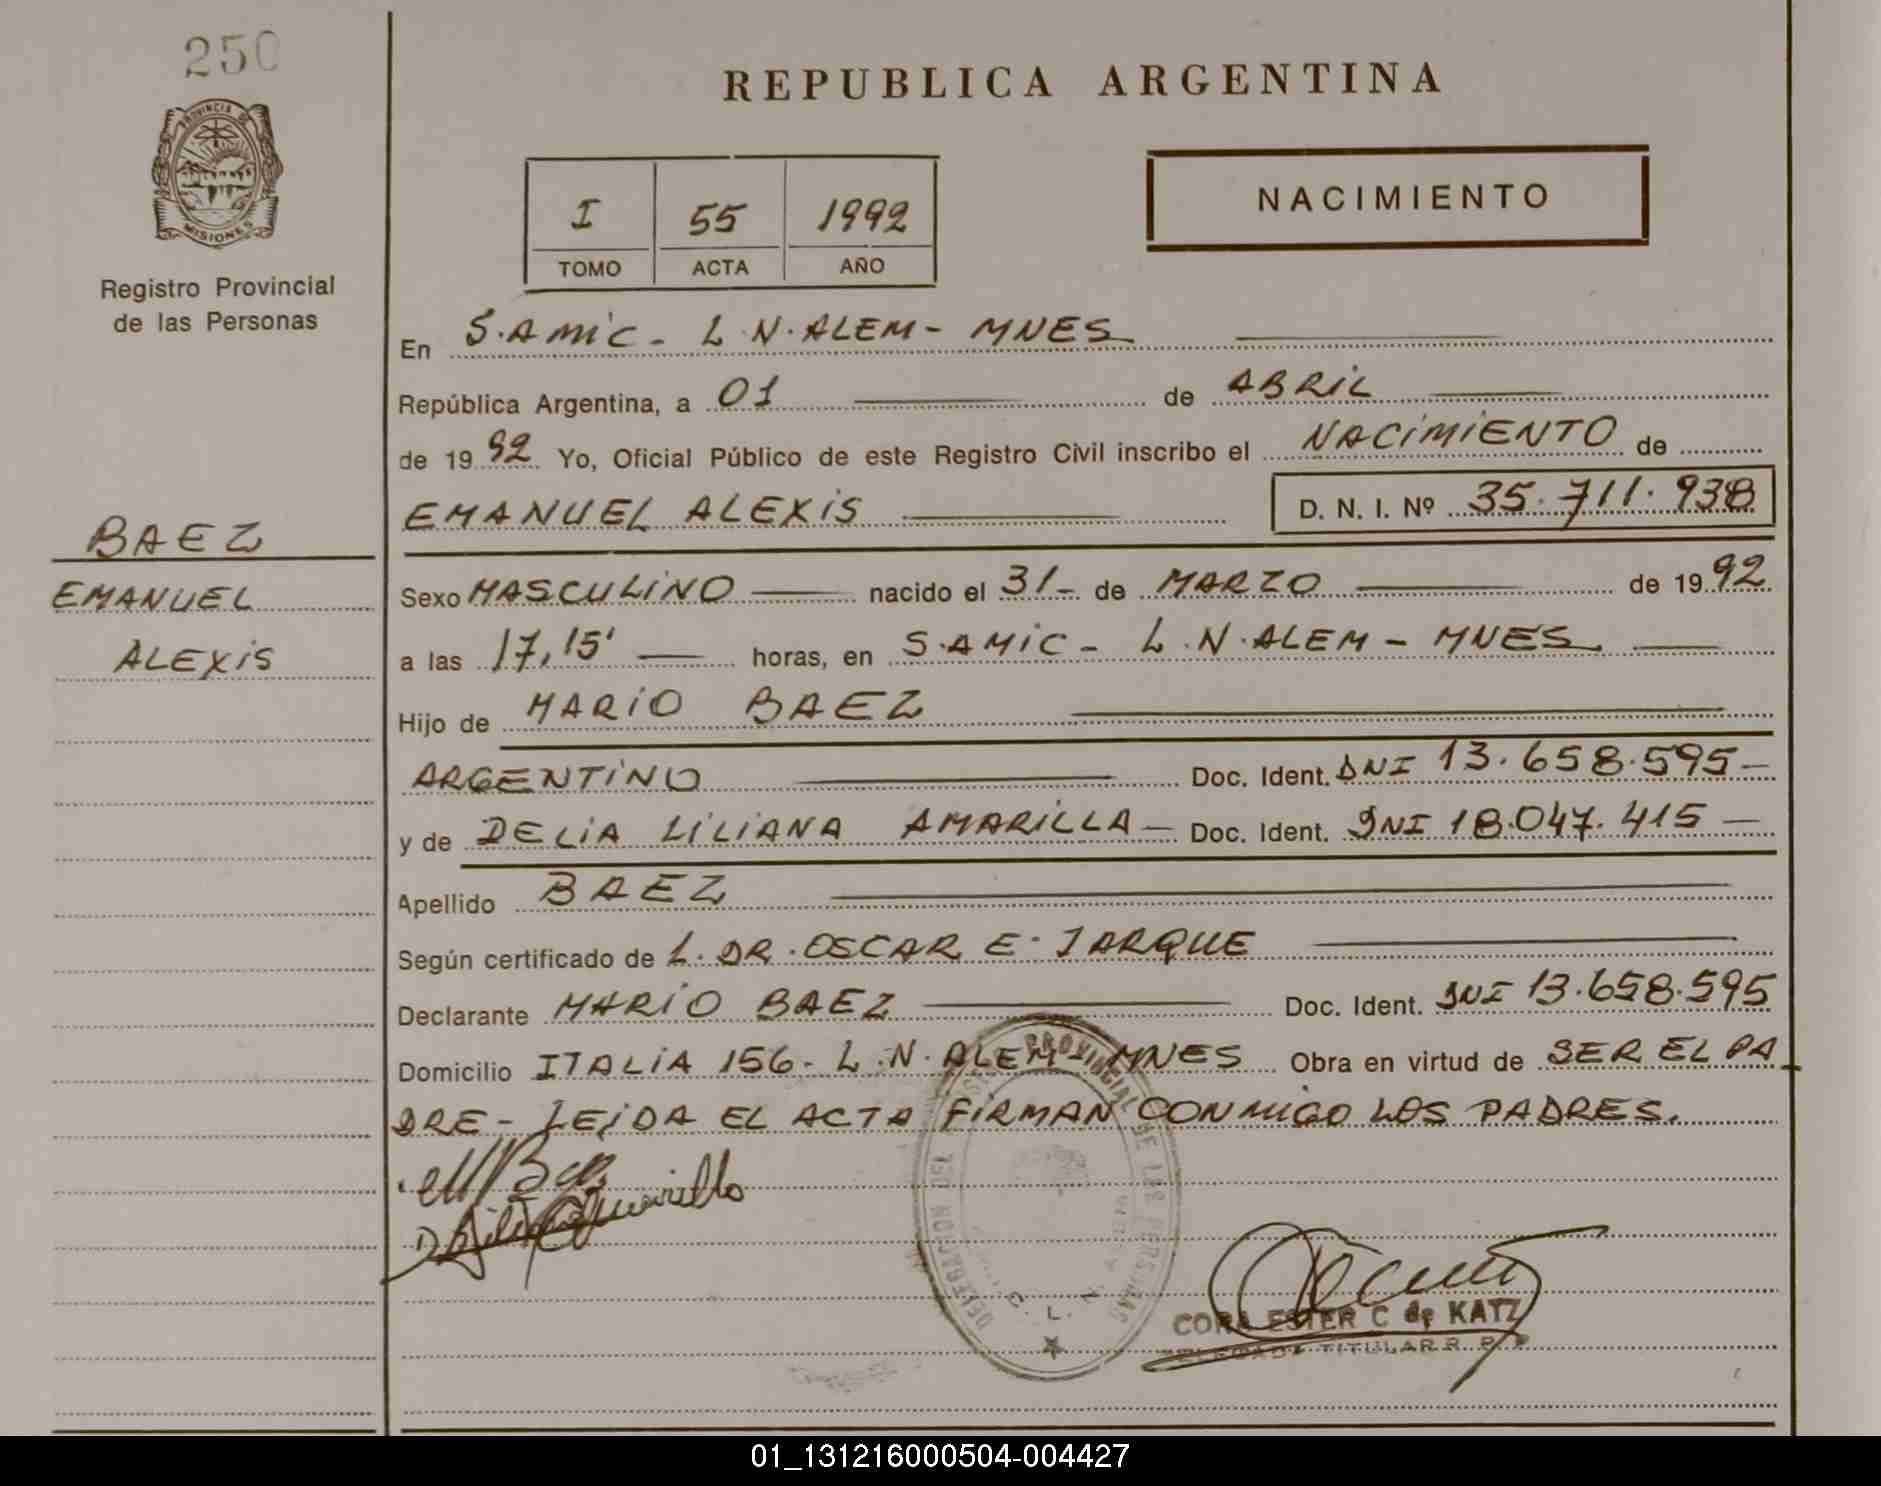 250
PROVINCIA DE
MISIONES
Registro Provincial
de las Personas
BAEZ
EMANUEL
ALEXIS
REPUBLICA ARGENTINA
I 55 1992
TOMO ACTA AÑO
NACIMIENTO
En S.AMIC- L.N.ALEM- MNES
República Argentina, a 01 de ABRIL
de 1992 Yo, Oficial Público de este Registro Civil inscribo el NACIMIENTO de
EMANUEL ALEXIS D. N. I. Nº 35.711.938
Sexo MASCULINO nacido el 31- de MARZO de 1992
a las 17,15' horas, en S.AMIC- L.N.ALEM - MNES
Hijo de MARIO BAEZ
ARGENTINO Doc. Ident. DNI 13.658.595-
y de DELIA LILIANA AMARILLA- Doc. Ident. DNI 18.047.415 -
Apellido BAEZ
Según certificado de L. DR. OSCAR E. JARQUE
Declarante MARIO BAEZ Doc. Ident. DNI 13.658.595
Domicilio ITALIA 156- L.N. ALEM- MNES Obra en virtud de SER EL PA
DRE - LEIDA EL ACTA FIRMAN CONMIGO LOS PADRES.
PROVINCIAL DE LAS PERSONAS
DELEGACION DEL
CORA ESTER C de KATZ
DELEGADA TITULAR R. P. P
01_131216000504-004427